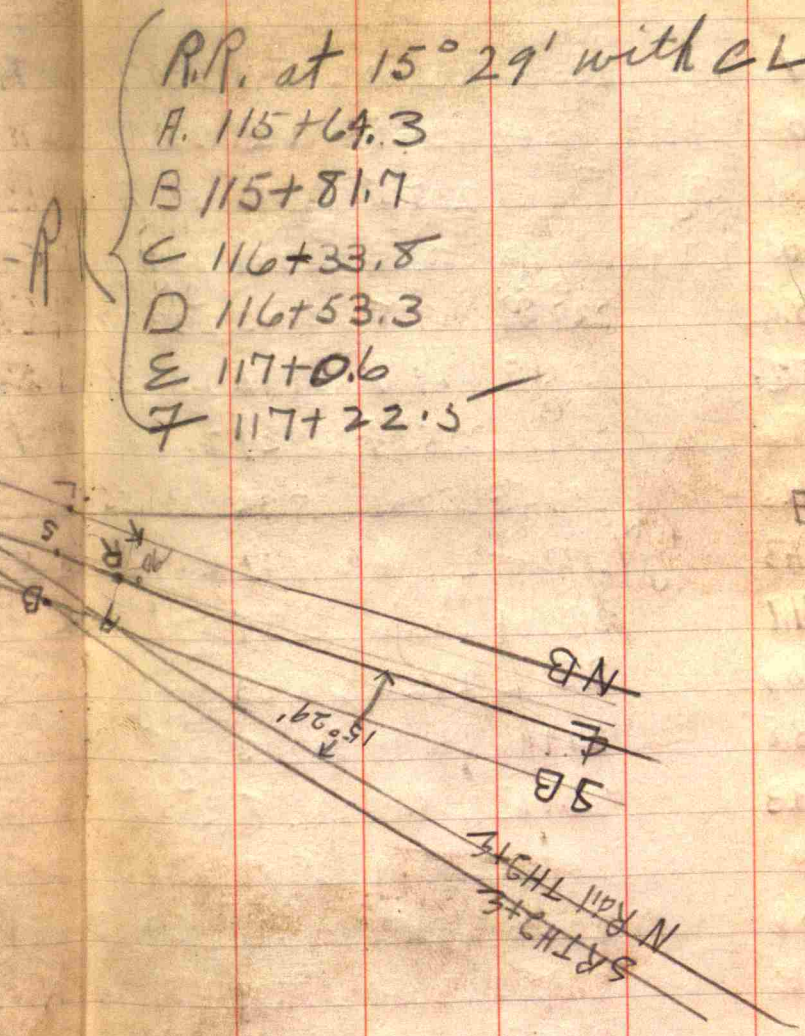 R.R. at 15° 29' with CL
A. 115+64.3
B 115+81.7
C 116+33.8
D 116+53.3
E 117+0.6
F 117+22.5
-R
L
S
K
R
A
B
15°29'
NB
℄
SB
N Rail